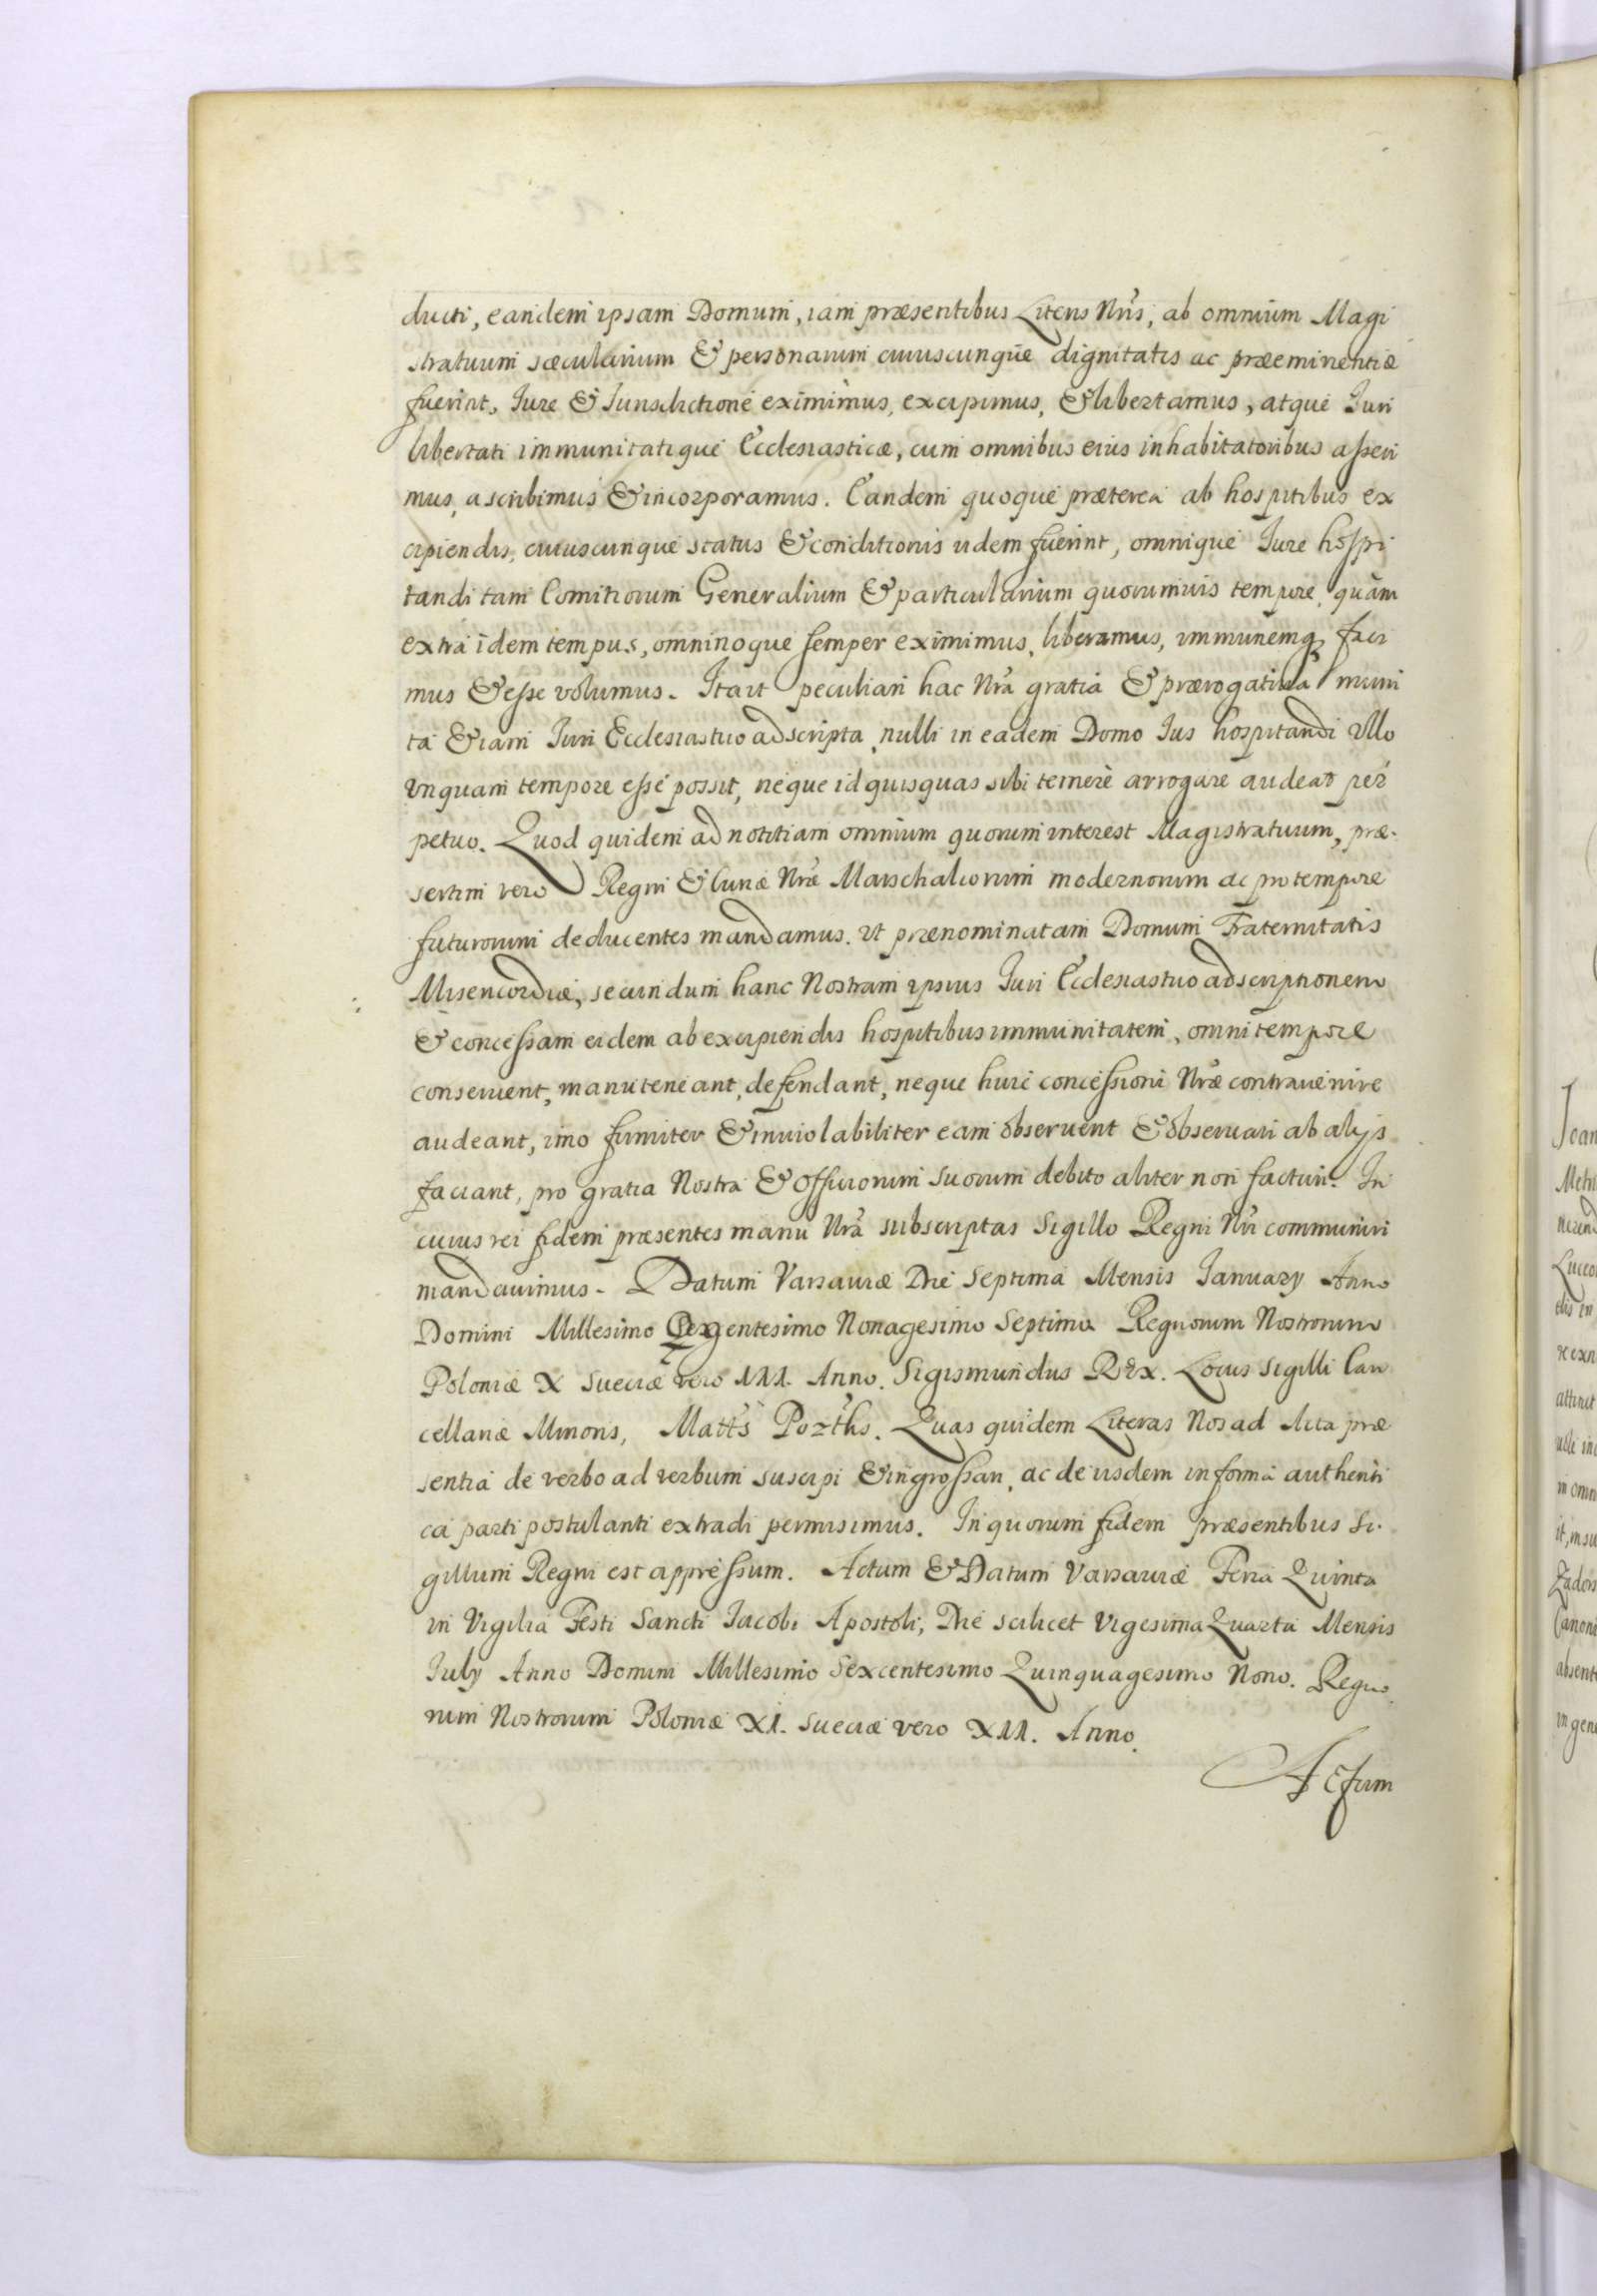 ducti, eandem ipsam Domum, iam præsentibus Literis Nris, ab omnium Magi
stratuum sæcularium & personarum cuiuscunque dignitatis ac præeminentiæ
fuerint, Jure & Jurisdictione eximimus, excipimus, & libertamus, atque Juri
libertati immunitatique Ecclesiasticæ, cum omnibus eius inhabitatoribus asseri
mus, ascribimus & incorporamus. Eandem quoque præterea ab hospitibus ex
cipiendis, cuiuscunque status & conditionis iidem fuerint, omnique Jure hospi
tandi tam Comitiorum Generalium & particularium quorumuis tempore, quàm
extra idem tempus, omninoque semper eximimus, liberamus, immunemq faci
mus & esse volumus. Ita ut peculiari hac Nra gratia & prærogatiua muni
ta & iam Juri Ecclesiastico adscripta, nulli in eadem Domo Jus hospitandi Vllo
vnquam tempore esse possit, neque id quisquas sibi temerè arrogare audeat per
petuo. Quod quidem ad notitiam omnium quorum interest Magistratuum, præ-
sertim vero Regni & Curiæ Nræ Marschalcorum modernorum ac pro tempore
futurorum deducentes mandamus. Ut prænominatam Domum Fraternitatis
Misericordiæ, secundum hanc Nostram ipsius Juri Ecclesiastico adscriptionem
& concessam eidem ab excipiendis hospitibus immunitatem, omni tempore
conseruent, manuteneant, defendant, neque huic concessioni Nræ contrauenire
audeant, imo firmiter & inuiolabiliter eam obseruent & obseruari ab alijs
faciant, pro gratia Nostra & Officiorum suorum debito aliter non facturi. In
cuius rei fidem præsentes manu Nra subscriptas Sigillo Regni Nri communiri
mandauimus. Datum Varsauiæ Die Septima Mensis January Anno
Domini Millesimo Nonagesimo Septimo Regnorum Nostrorum
Poloniæ X Sueciæ vero III. Anno. Sigismundus Rex. Locus Sigilli Can
cellariæ Minoris, Matts Pozths. Quas quidem Literas Nos ad Acta præ
sentia de verbo ad verbum suscipi & ingrossari, ac de iisdem in forma authenti
ca parti postulanti extradi permisimus. In quorum fidem præsentibus Si-
gillum Regni est appressum. Actum & Datum Varsauiæ Feria Quinta
in Vigilia Festi Sancti Jacobi Apostoli, Die scilicet Vigesima Quarta Mensis
July Anno Domini Millesimo Sexcentesimo Quinquagesimo Nono. Regno
rum Nostrorum Poloniæ XI. Sueciæ vero XII. Anno.
Actum